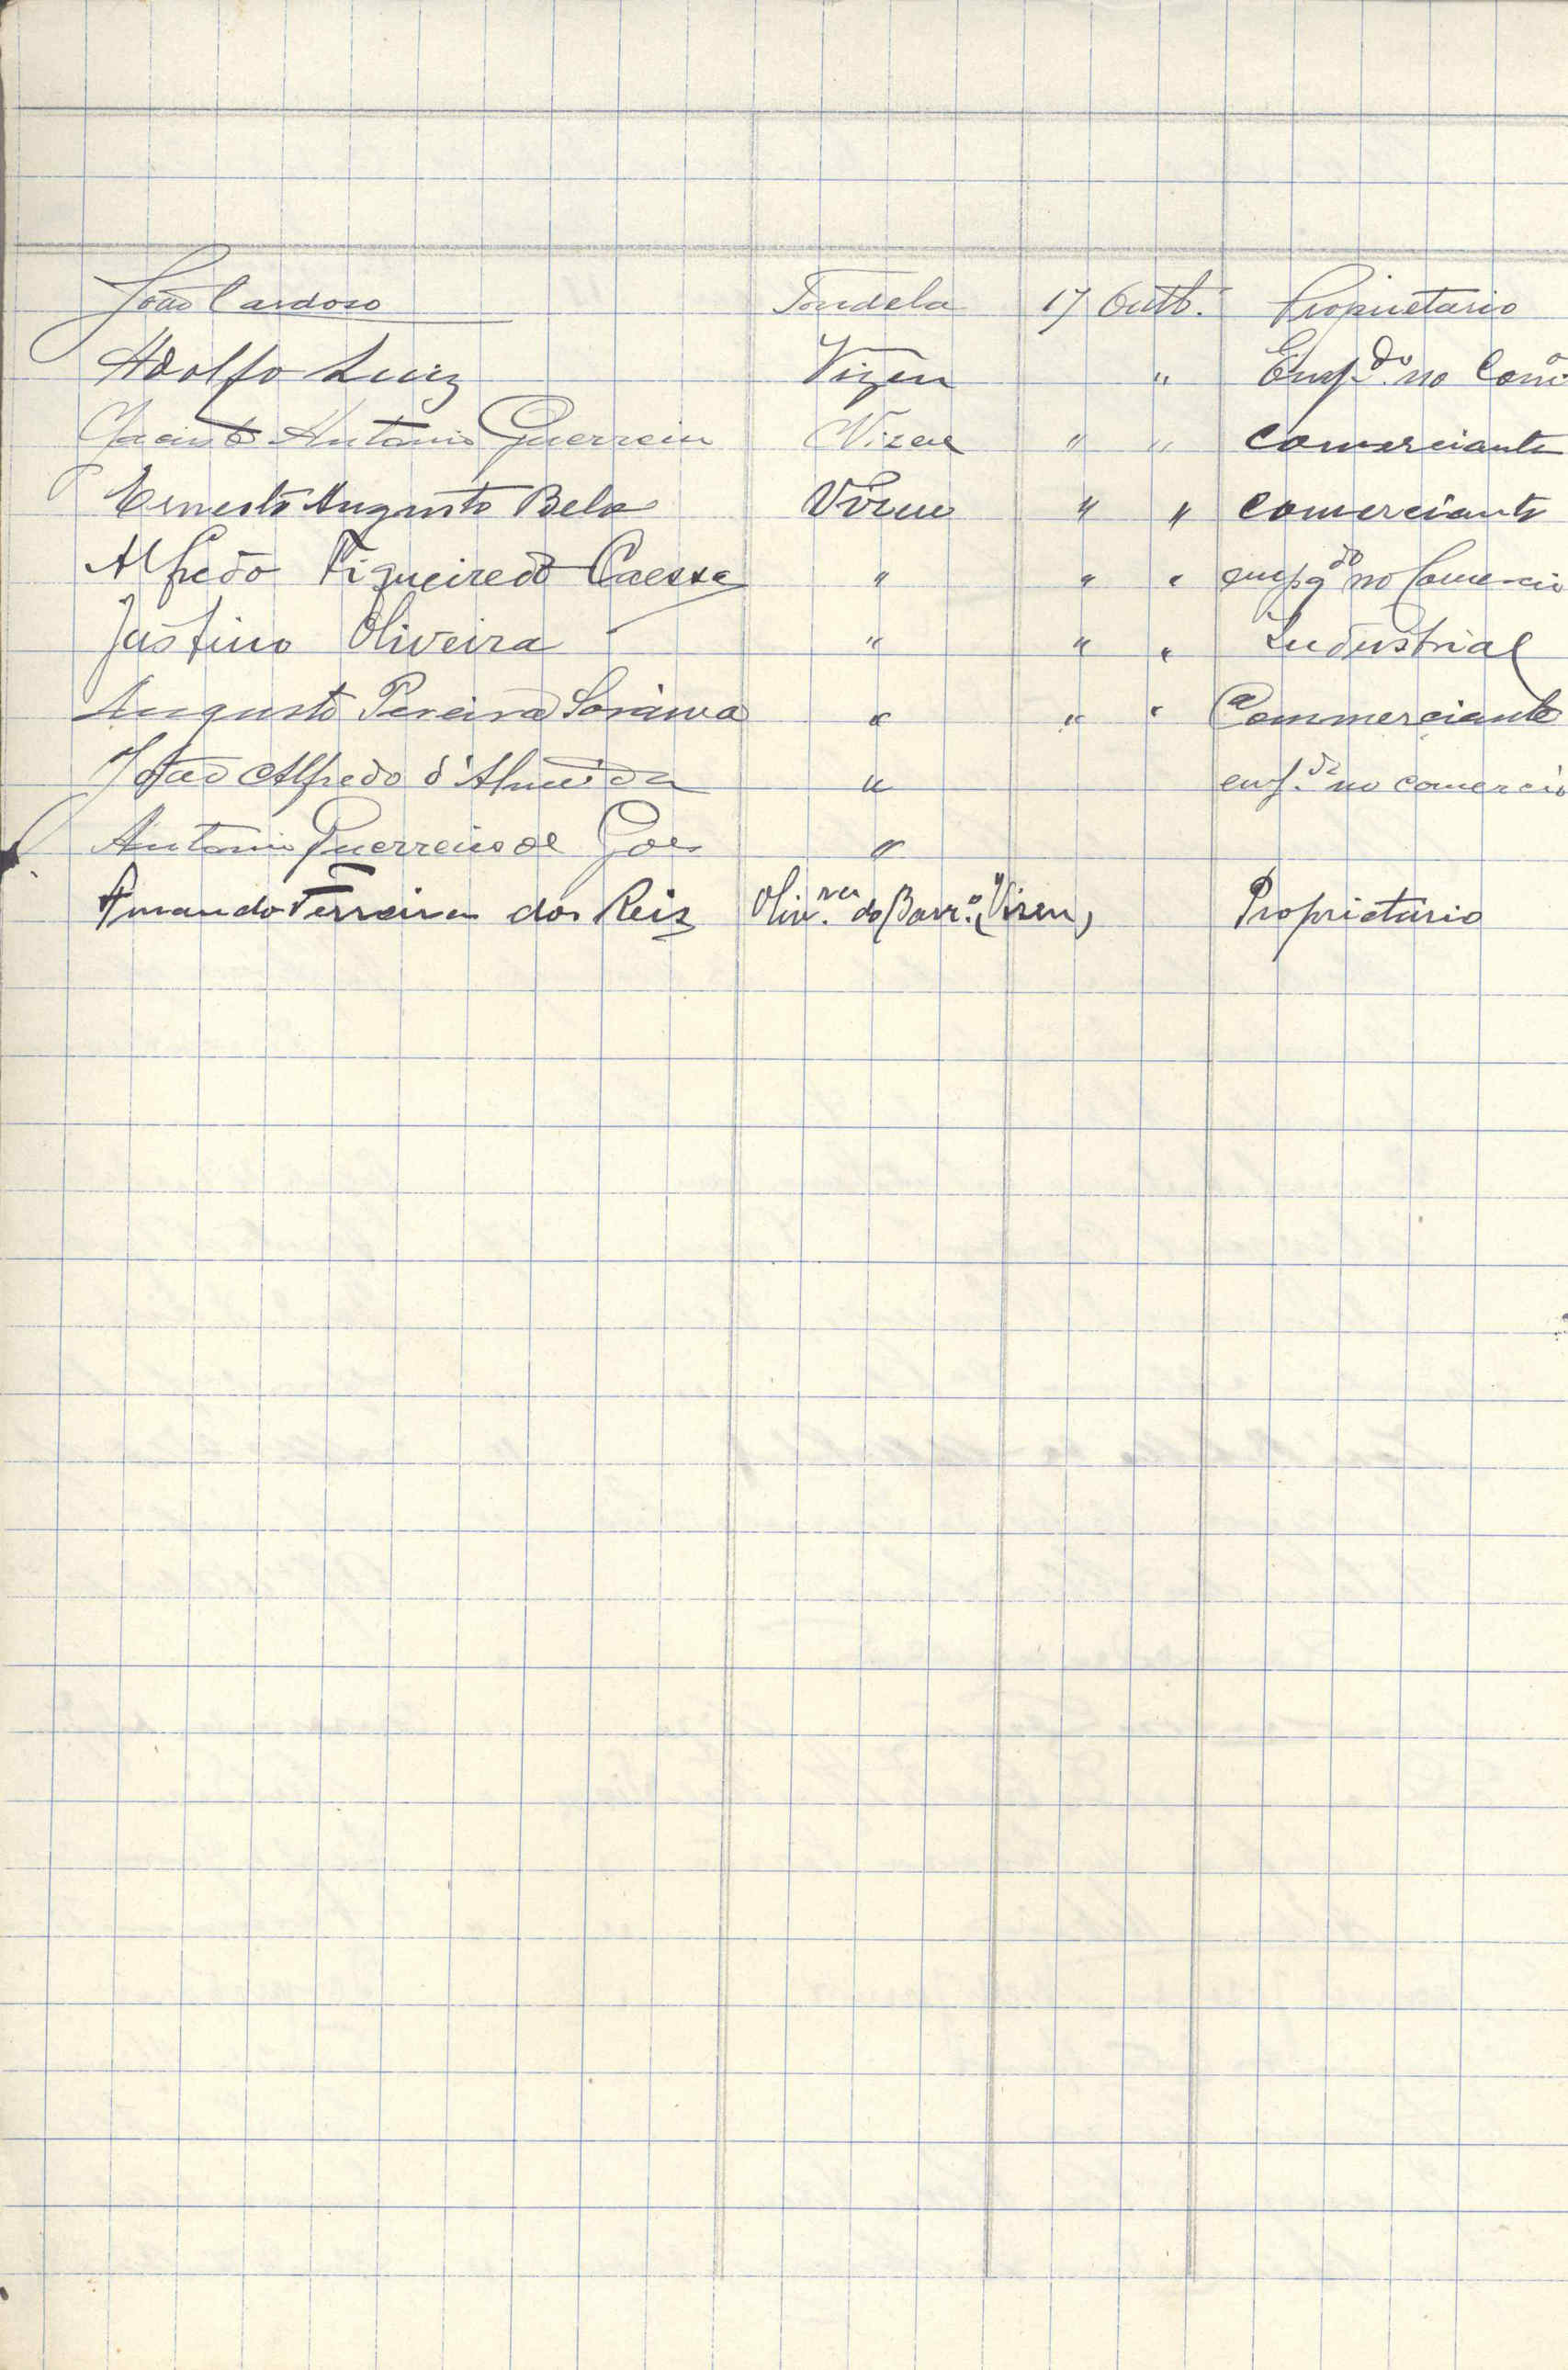 João Cardoso Tondela 17 Outb. Proprietario
Adolfo Luiz Vizeu " Emp.do no Com.o
Jacinto Antonio Guerreiro Vizeu " " comerciante
Ernesto Augusto Belo Vizeu " " comerciante
Alfredo Figueiredo " " " empgdo no Comercio
Justino Oliveira " " " Industrial
Augusto Pereira " " " Commerciante
João Alfredo d'Almeida " emp.do no comercio
Antonio Guerreiro de Goes "
Armando Ferreira dos Reis Oliv.ra do Barr.o (Vizeu) " Proprietário